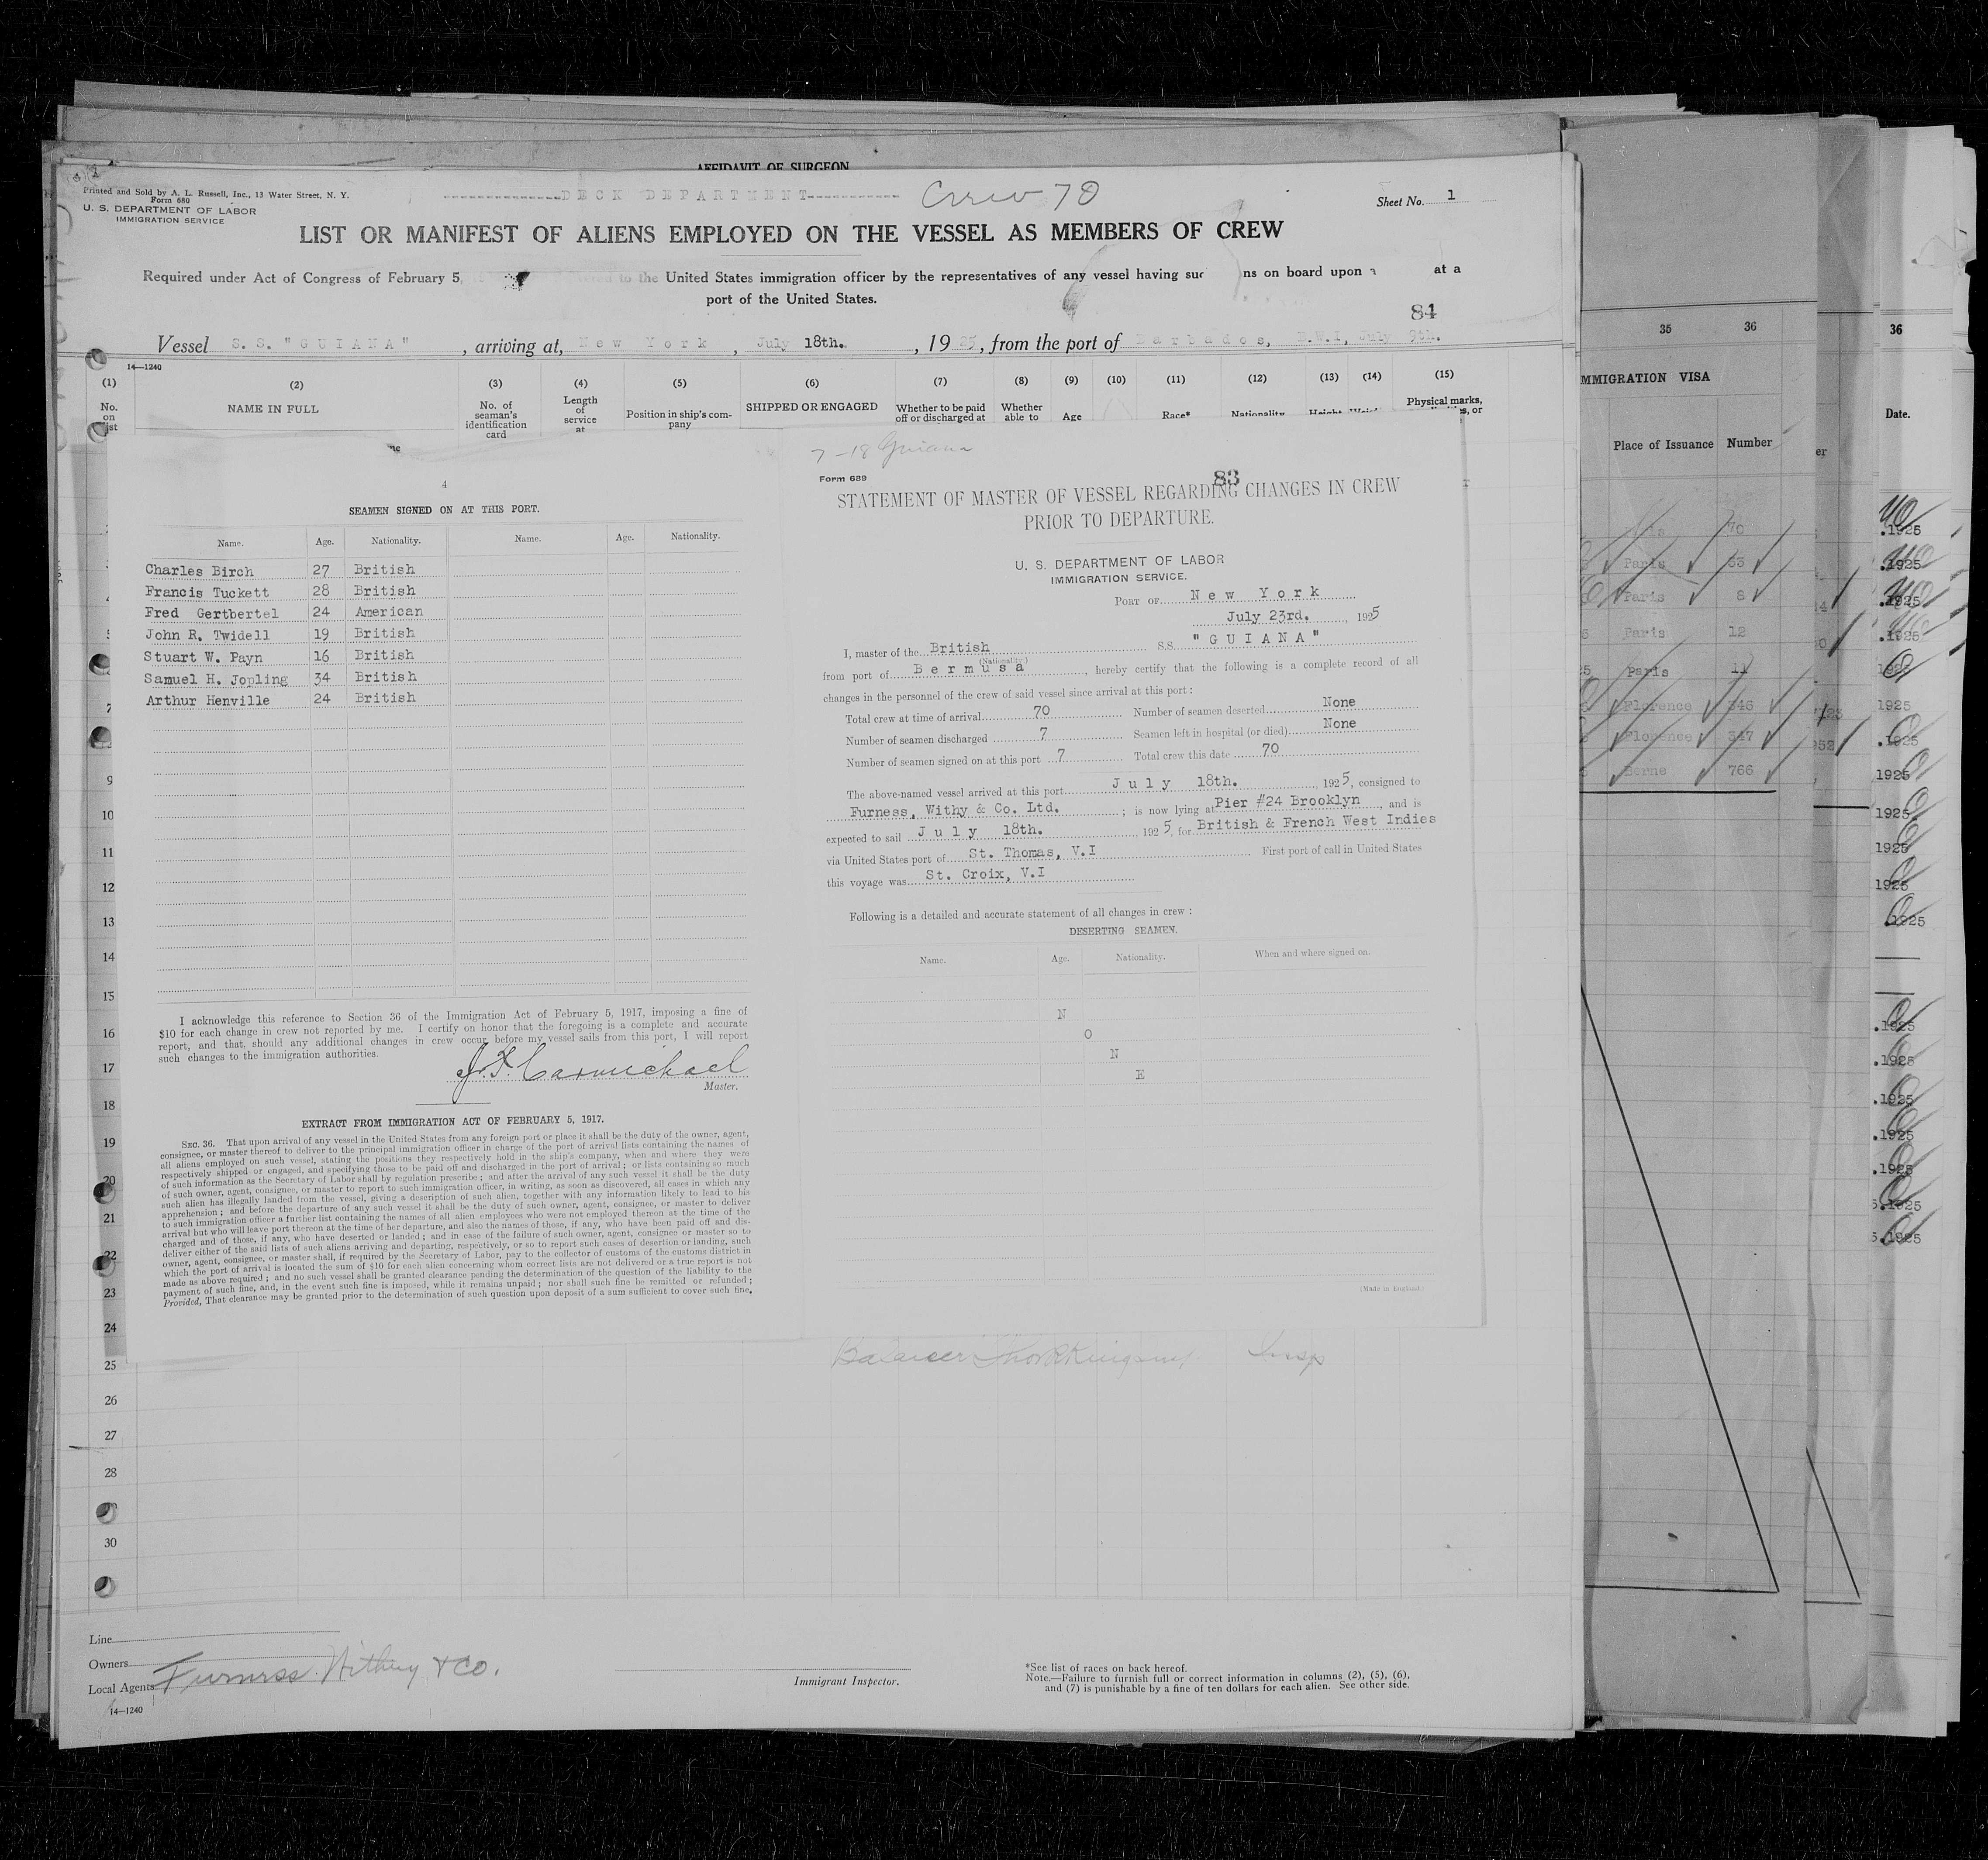 AFFIDAVIT OF SURGEON
Printed and Sold by A. L. Russell, Inc., 13 Water Street, N. Y.
Form 680
U. S. DEPARTMENT OF LABOR
IMMIGRATION SERVICE
DECK DEPARTMENT
Crew 70
Sheet No. 1
LIST OR MANIFEST OF ALIENS EMPLOYED ON THE VESSEL AS MEMBERS OF CREW
Required under Act of Congress of February 5, to the United States immigration officer by the representatives of any vessel having suc ns on board upon a at a
port of the United States.
84
Vessel S. S. "GUIANA", arriving at, New York, July 18th., 1925, from the port of Barbados, B.W.I, July 9th.
14—1240
(1) (2) (3) (4) (5) (6) (7) (8) (9) (10) (11) (12) (13) (14) (15)
No. on list
NAME IN FULL
No. of seaman's identification card
Length of service at
Position in ship's company
SHIPPED OR ENGAGED
Whether to be paid off or discharged at
Whether able to
Age
Race*
Nationality
Height
Physical marks, or
4
SEAMEN SIGNED ON AT THIS PORT.
Name. Age. Nationality. Name. Age. Nationality.
Charles Birch 27 British
Francis Tuckett 28 British
Fred Gertbertel 24 American
John R. Twidell 19 British
Stuart W. Payn 16 British
Samuel H. Jopling 34 British
Arthur Henville 24 British
I acknowledge this reference to Section 36 of the Immigration Act of February 5, 1917, imposing a fine of
$10 for each change in crew not reported by me. I certify on honor that the foregoing is a complete and accurate
report, and that, should any additional changes in crew occur before my vessel sails from this port, I will report
such changes to the immigration authorities.
J. F. Carmichael
Master.
EXTRACT FROM IMMIGRATION ACT OF FEBRUARY 5, 1917.
SEC. 36. That upon arrival of any vessel in the United States from any foreign port or place it shall be the duty of the owner, agent,
consignee, or master thereof to deliver to the principal immigration officer in charge of the port of arrival lists containing the names of
all aliens employed on such vessel, stating the positions they respectively hold in the ship's company, when and where they were
respectively shipped or engaged, and specifying those to be paid off and discharged in the port of arrival; or lists containing so much
of such information as the Secretary of Labor shall by regulation prescribe; and after the arrival of any such vessel it shall be the duty
of such owner, agent, consignee, or master to report to such immigration officer, in writing, as soon as discovered, all cases in which any
such alien has illegally landed from the vessel, giving a description of such alien, together with any information likely to lead to his
apprehension; and before the departure of any such vessel it shall be the duty of such owner, agent, consignee, or master to deliver
to such immigration officer a further list containing the names of all alien employees who were not employed thereon at the time of the
arrival but who will leave port thereon at the time of her departure, and also the names of those, if any, who have been paid off and dis-
charged and of those, if any, who have deserted or landed; and in case of the failure of such owner, agent, consignee or master so to
deliver either of the said lists of such aliens arriving and departing, respectively, or so to report such cases of desertion or landing, such
owner, agent, consignee, or master shall, if required by the Secretary of Labor, pay to the collector of customs of the customs district in
which the port of arrival is located the sum of $10 for each alien concerning whom correct lists are not delivered or a true report is not
made as above required; and no such vessel shall be granted clearance pending the determination of the question of the liability to the
payment of such fine, and, in the event such fine is imposed, while it remains unpaid; nor shall such fine be remitted or refunded;
Provided, That clearance may be granted prior to the determination of such question upon deposit of a sum sufficient to cover such fine.
7-18 Guiana
Form 689
83
STATEMENT OF MASTER OF VESSEL REGARDING CHANGES IN CREW
PRIOR TO DEPARTURE.
U. S. DEPARTMENT OF LABOR
IMMIGRATION SERVICE.
PORT OF New York
July 23rd., 1925
I, master of the British S.S. "GUIANA"
(Nationality)
from port of Bermusa, hereby certify that the following is a complete record of all
changes in the personnel of the crew of said vessel since arrival at this port:
Total crew at time of arrival 70 Number of seamen deserted None
Number of seamen discharged 7 Seamen left in hospital (or died) None
Number of seamen signed on at this port 7 Total crew this date 70
The above-named vessel arrived at this port July 18th., 1925, consigned to
Furness, Withy & Co. Ltd.; is now lying at Pier #24 Brooklyn, and is
expected to sail July 18th. 1925, for British & French West Indies
via United States port of St. Thomas, V.I First port of call in United States
this voyage was St. Croix, V.I
Following is a detailed and accurate statement of all changes in crew:
DESERTING SEAMEN.
Name. Age. Nationality. When and where signed on.
N
O
N
E
(Made in England.)
9
10
11
12
13
14
15
16
17
18
19
20
21
22
23
24
25
26
27
28
30
Insp
Line
Owners
Local Agents Furness Withy & Co.
14—1240
Immigrant Inspector.
*See list of races on back hereof.
Note.—Failure to furnish full or correct information in columns (2), (5), (6),
and (7) is punishable by a fine of ten dollars for each alien. See other side.
35 36
IMMIGRATION VISA
Place of Issuance Number
70
Paris 53
Paris 8
Paris 12
Paris 11
Florence 346
Florence 347
Berne 766
36
Date.
.1925
.1925
.1925
.1925
1925
1925
.1925
1925
1925
1925
1925
.1925
.1925
.1925
.1925
.1925
.1925
5.1925
5.1925